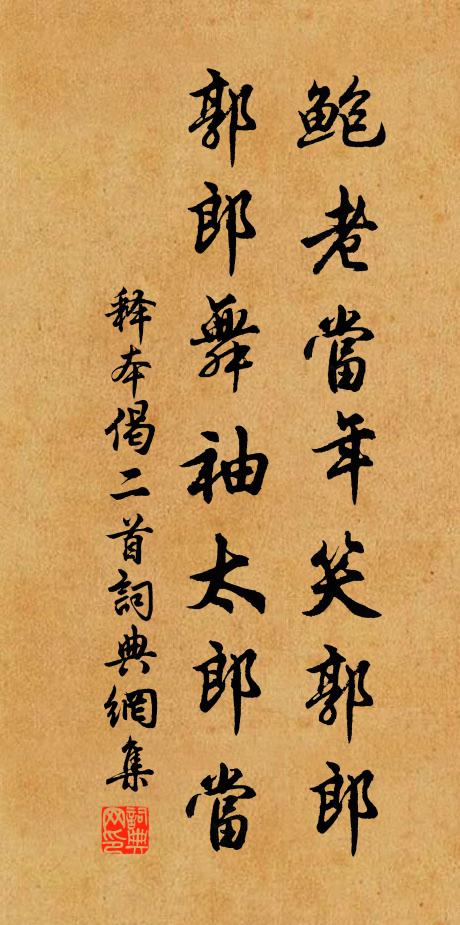 鮑老當年笑郭郎
郭郎舞袖太郎當
释本偈二首詞典網集
詞典網印